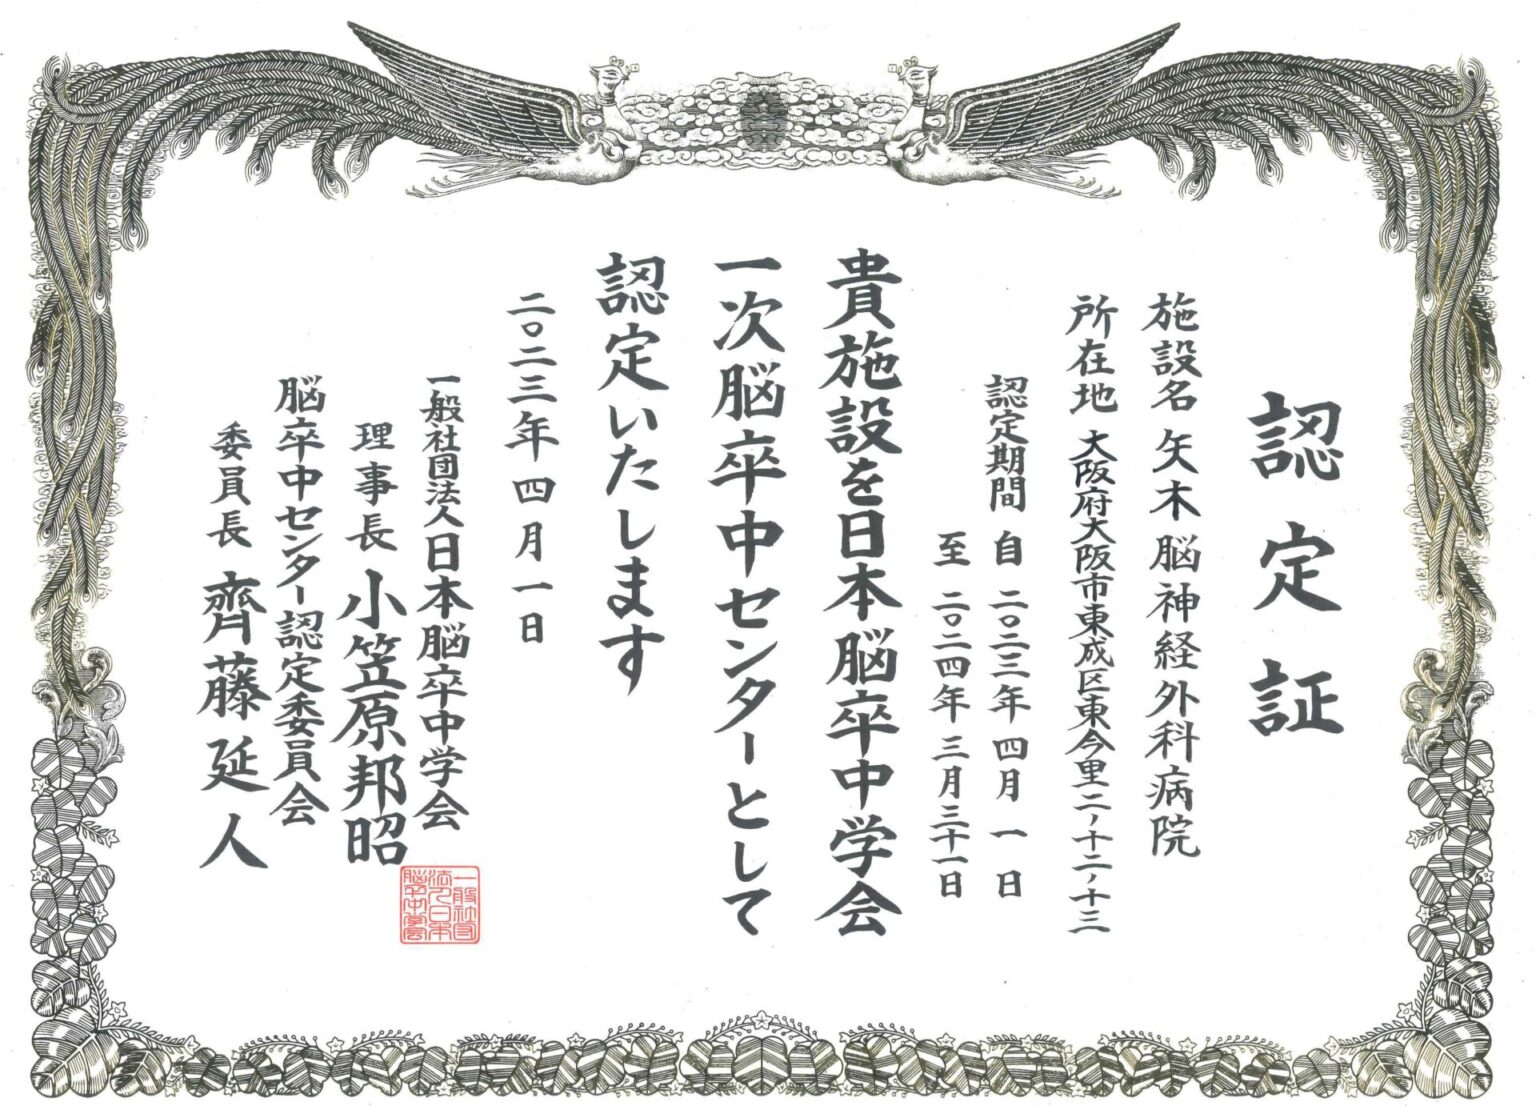 認定証
施設名 矢木脳神経外科病院
所在地 大阪府大阪市東成区東今里二ノ十二ノ十三
認定期間 自 二〇二三年 四月 一日
至 二〇二四年 三月三十一日
貴施設を日本脳卒中学会
一次脳卒中センターとして
認定いたします
二〇二三年 四月一日
一般社団法人日本脳卒中学会
理事長 小笠原邦昭
脳卒中センター認定委員会
委員長 齊藤延人
一般社団
法人日本
脳卒中学会